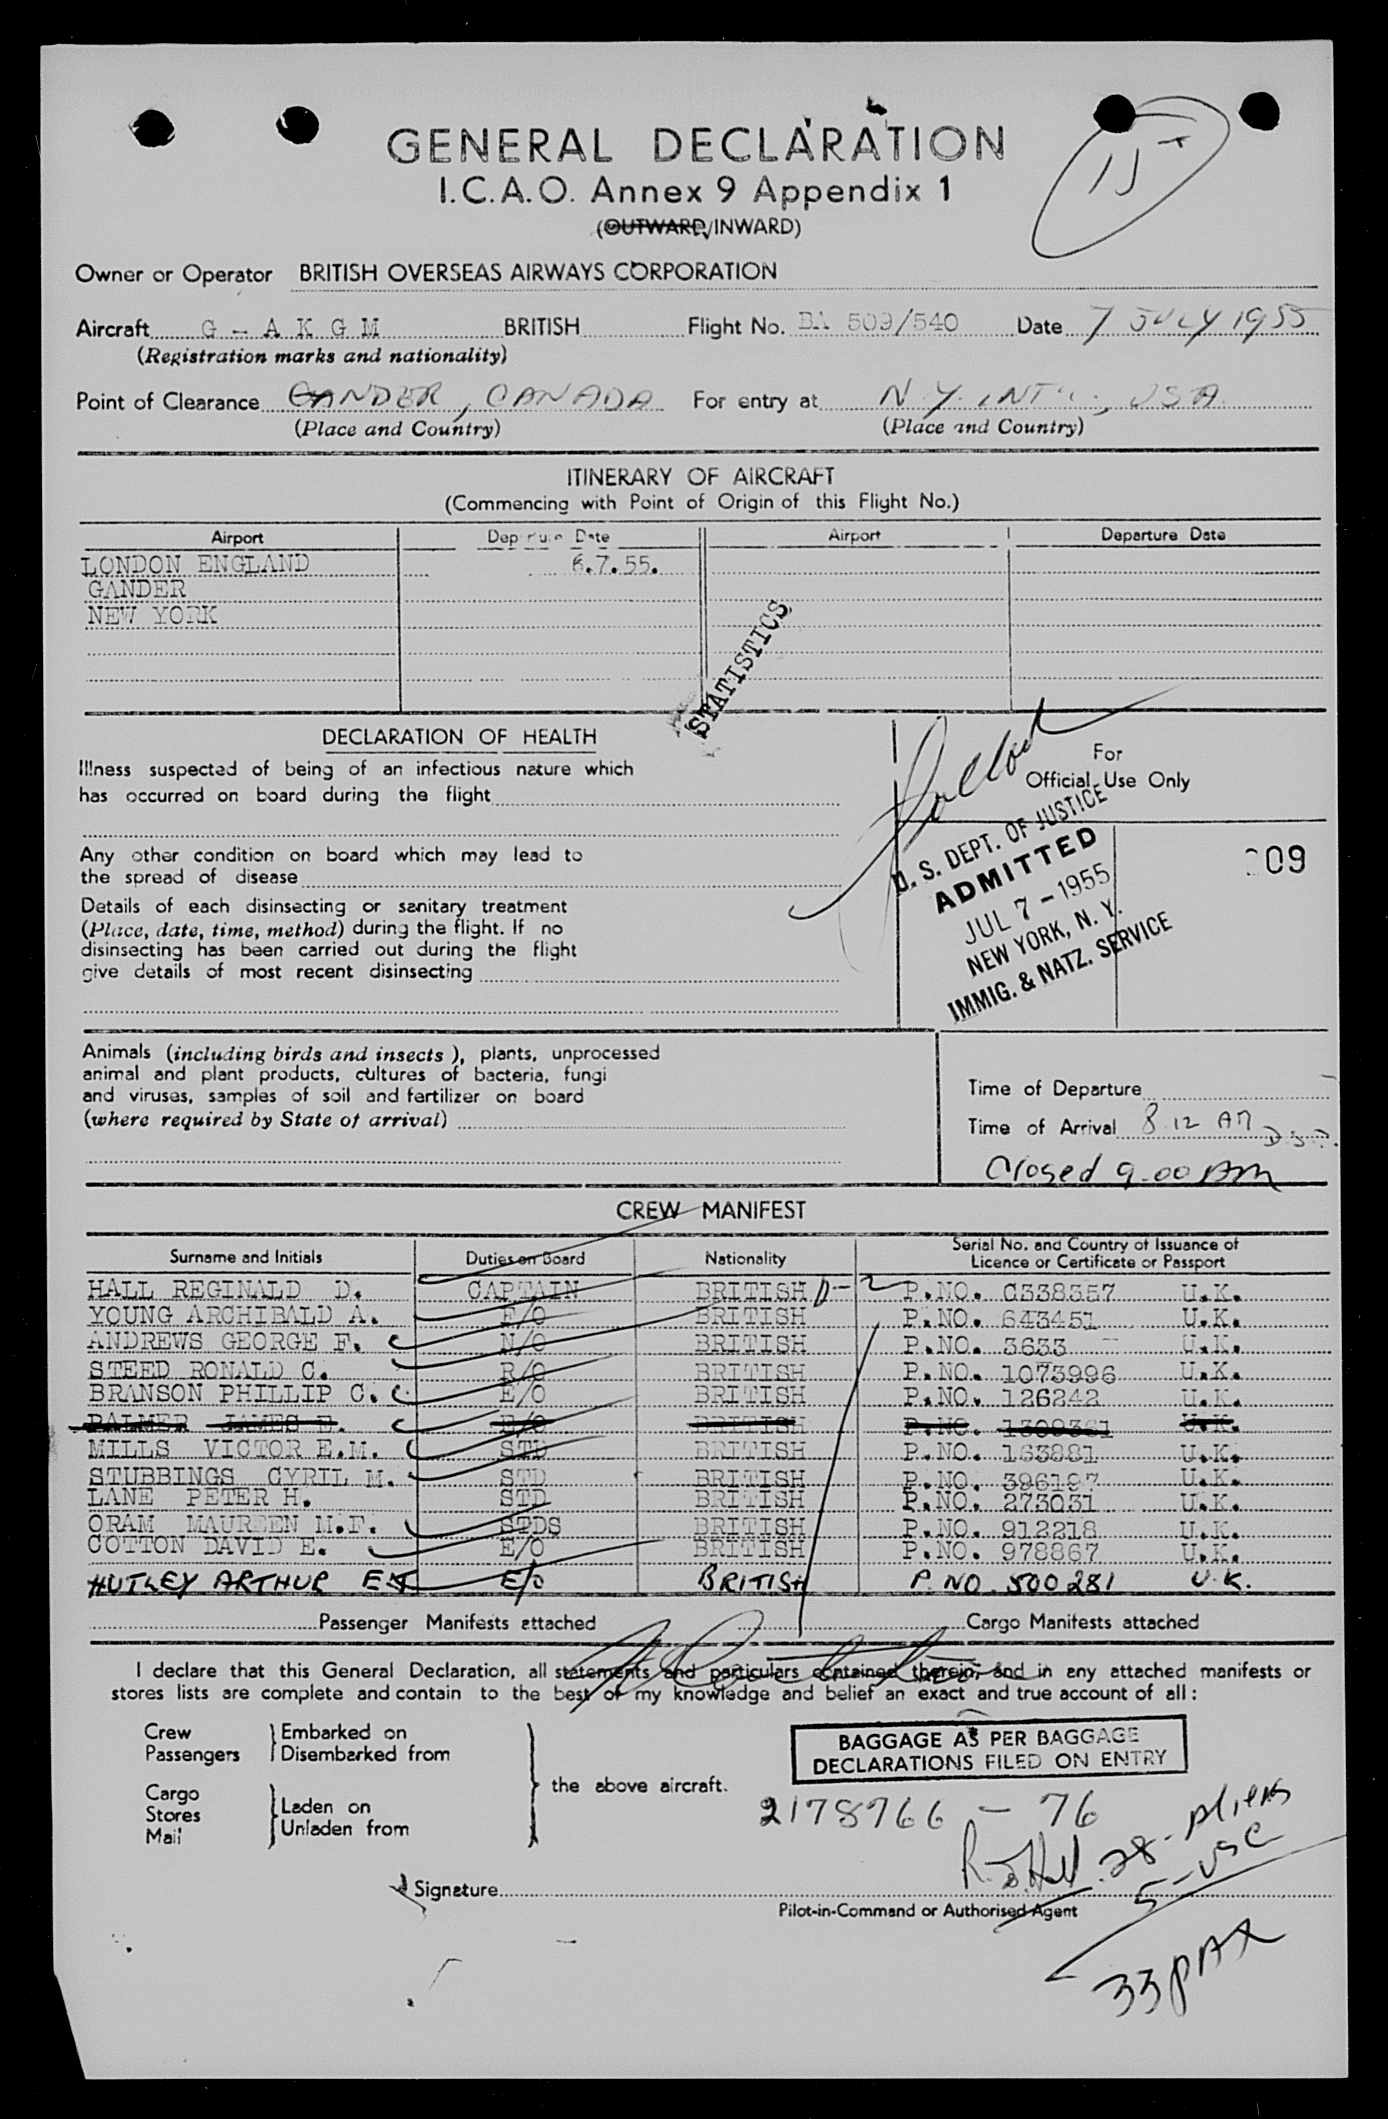 GENERAL DECLARATION
I.C.A.O. Annex 9 Appendix 1
(OUTWARD/INWARD)
Owner or Operator BRITISH OVERSEAS AIRWAYS CORPORATION
Aircraft G - A K G M BRITISH Flight No. BA 509/540 Date 7 JULY 1955
(Registration marks and nationality)
Point of Clearance GANDER, CANADA For entry at N.Y. INT'L., USA
(Place and Country) (Place and Country)
ITINERARY OF AIRCRAFT
(Commencing with Point of Origin of this Flight No.)
Airport Departure Date Airport Departure Date
LONDON ENGLAND 6.7.55.
GANDER
NEW YORK
STATISTICS
DECLARATION OF HEALTH
Illness suspected of being of an infectious nature which
has occurred on board during the flight
Any other condition on board which may lead to
the spread of disease
Details of each disinsecting or sanitary treatment
(Place, date, time, method) during the flight. If no
disinsecting has been carried out during the flight
give details of most recent disinsecting
For
Official Use Only
U. S. DEPT. OF JUSTICE
ADMITTED
JUL 7 - 1955
NEW YORK, N. Y.
IMMIG. & NATZ. SERVICE
09
Animals (including birds and insects), plants, unprocessed
animal and plant products, cultures of bacteria, fungi
and viruses, samples of soil and fertilizer on board
(where required by State of arrival)
Time of Departure
Time of Arrival 8 12 AM D.S.T.
Closed 9.00 AM
CREW MANIFEST
Surname and Initials Duties on Board Nationality Serial No. and Country of Issuance of
Licence or Certificate or Passport
HALL REGINALD D. CAPTAIN BRITISH D-2 P.NO. C338357 U.K.
YOUNG ARCHIBALD A. F/O BRITISH P.NO. 643451 U.K.
ANDREWS GEORGE F. N/O BRITISH P.NO. 3633 U.K.
STEED RONALD C. R/O BRITISH P.NO. 1073996 U.K.
BRANSON PHILLIP C. E/O BRITISH P.NO. 126242 U.K.
PALMER JAMES E. E/O BRITISH P.NO. U.K.
MILLS VICTOR E.M. STD BRITISH P.NO. 163881 U.K.
STUBBINGS CYRIL M. STD BRITISH P.NO. 396197 U.K.
LANE PETER H. STD BRITISH P.NO. 273031 U.K.
ORAM MAUREEN M.F. STDS BRITISH P.NO. 912218 U.K.
COTTON DAVID E. E/O BRITISH P.NO. 978867 U.K.
HUTLEY ARTHUR E/O BRITISH P.NO. 500281 U.K.
Passenger Manifests attached Cargo Manifests attached
I declare that this General Declaration, all statements and particulars contained therein, and in any attached manifests or
stores lists are complete and contain to the best of my knowledge and belief an exact and true account of all:
Crew
Passengers
Embarked on
Disembarked from
Cargo
Stores
Mail
Laden on
Unladen from
the above aircraft.
BAGGAGE AS PER BAGGAGE
DECLARATIONS FILED ON ENTRY
2178766 - 76
28 - Aliens
5 - USC
Signature R.D. Hall
Pilot-in-Command or Authorised Agent
33 PAX